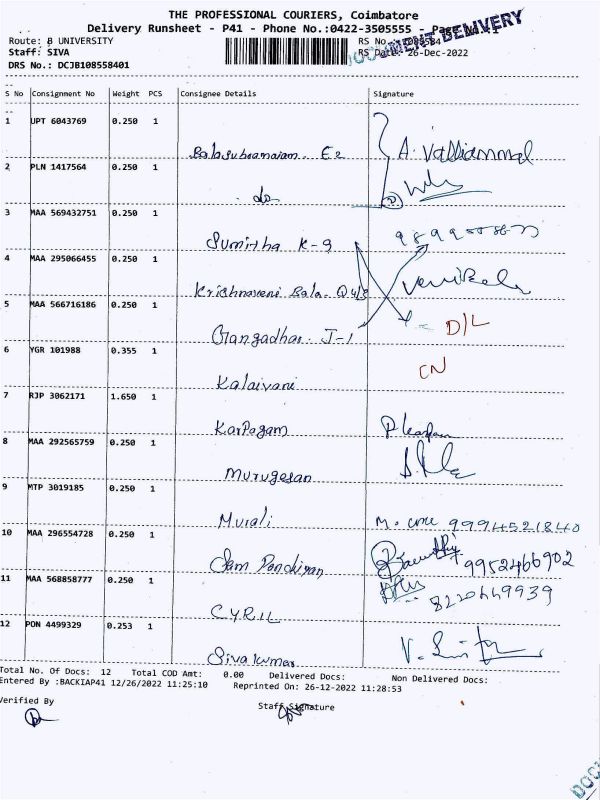 THE PROFESSIONAL COURIERS, Coimbatore
Delivery Runsheet - P41 - Phone No.:0422-3505555 -
DOCUMENT DELIVERY
Route: B UNIVERSITY RS No.
Staff: SIVA RS Date: 26-Dec-2022
DRS No.: DCJB108558401
S No Consignment No Weight PCS Consignee Details Signature
1 UPT 6043769 0.250 1
Balasubramaniam. E2 A. Valliammal
2 PLN 1417564 0.250 1
do
3 MAA 569432751 0.250 1
Sumitha K-9
4 MAA 295066455 0.250 1
Krishnaveni Bala
5 MAA 566716186 0.250 1
Gangadhar J-1 D/L
6 YGR 101988 0.355 1 CN
Kalaivani
7 RJP 3062171 1.650 1
Karpagam
8 MAA 292565759 0.250 1
Murugesan
9 MTP 3019185 0.250 1
Murali 9994521840
10 MAA 296554728 0.250 1
Sam Pandiyan 9952466902
11 MAA 568858777 0.250 1
CYRIL 8220449939
12 PON 4499329 0.253 1
Sivakumar
Total No. Of Docs: 12 Total COD Amt: 0.00 Delivered Docs: Non Delivered Docs:
Entered By :BACKIAP41 12/26/2022 11:25:10 Reprinted On: 26-12-2022 11:28:53
Verified By Staff Signature
DOCU